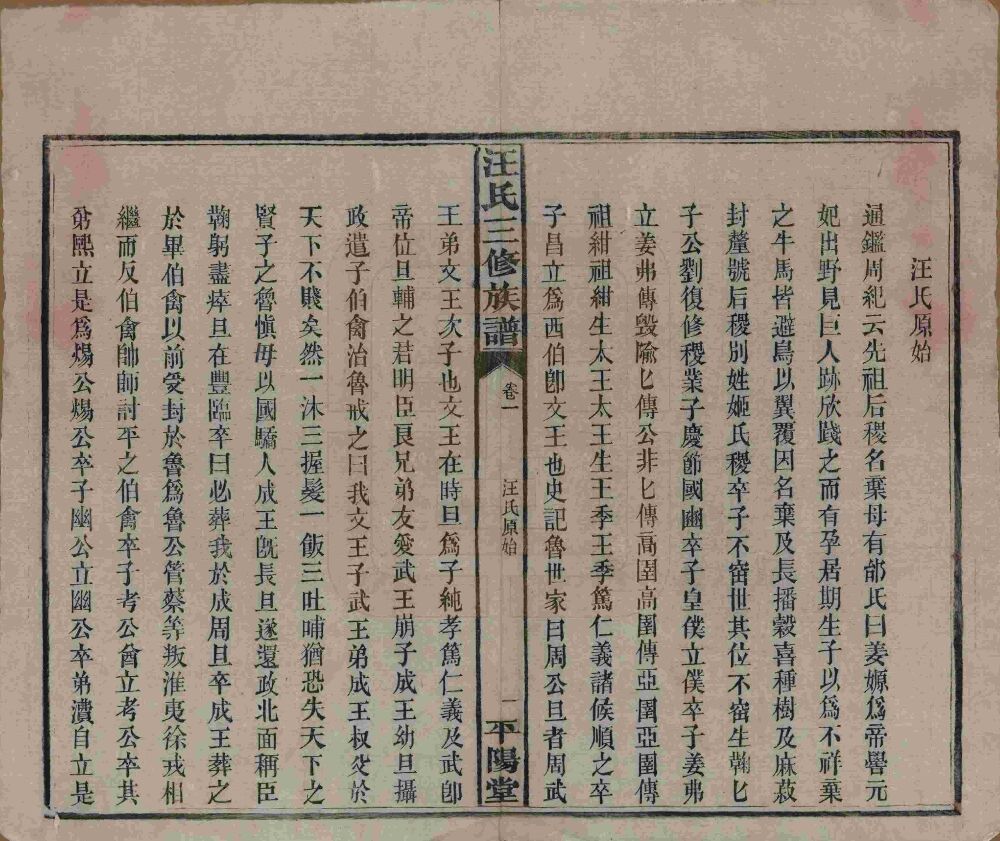 汪氏原始
通鑑周紀云先祖后稷名棄母有邰氏曰姜嫄爲帝嚳元
妃出野見巨人跡欣踐之而有孕居期生子以爲不祥棄
之牛馬皆避鳥以翼覆因名棄及長播穀喜種樹及麻菽
封釐號后稷别姓姬氏稷卒子不窋世其位不窋生鞠匕
子公劉復修稷業子慶節國豳卒子皇僕立僕卒子姜弗
立姜弗傳毀隃匕傳公非匕傳高圉高圉傳亞圉亞圉傳
祖紺祖紺生太王太王生王季王季篤仁義諸候順之卒
子昌立爲西伯卽文王也史記魯世家曰周公旦者周武
汪氏三修族譜
卷一
汪氏原始
一
平陽堂
王弟文王次子也文王在時旦爲子純孝篤仁義及武卽
帝位旦輔之君明臣良兄弟友愛武王崩子成王幼旦攝
政遣子伯禽治魯戒之曰我文王子武王弟成王叔父於
天下不賤矣然一沐三握髮一飯三吐哺猶恐失天下之
賢子之魯慎毋以國驕人成王旣長旦遂還政北面稱臣
鞠躬盡瘁旦在豐臨卒曰必葬我於成周旦卒成王葬之
於畢伯禽以前受封於魯爲魯公管蔡等叛淮夷徐戎相
繼而反伯禽帥師討平之伯禽卒子考公酋立考公卒其
弟熙立是爲煬公煬公卒子幽公立幽公卒弟潰自立是